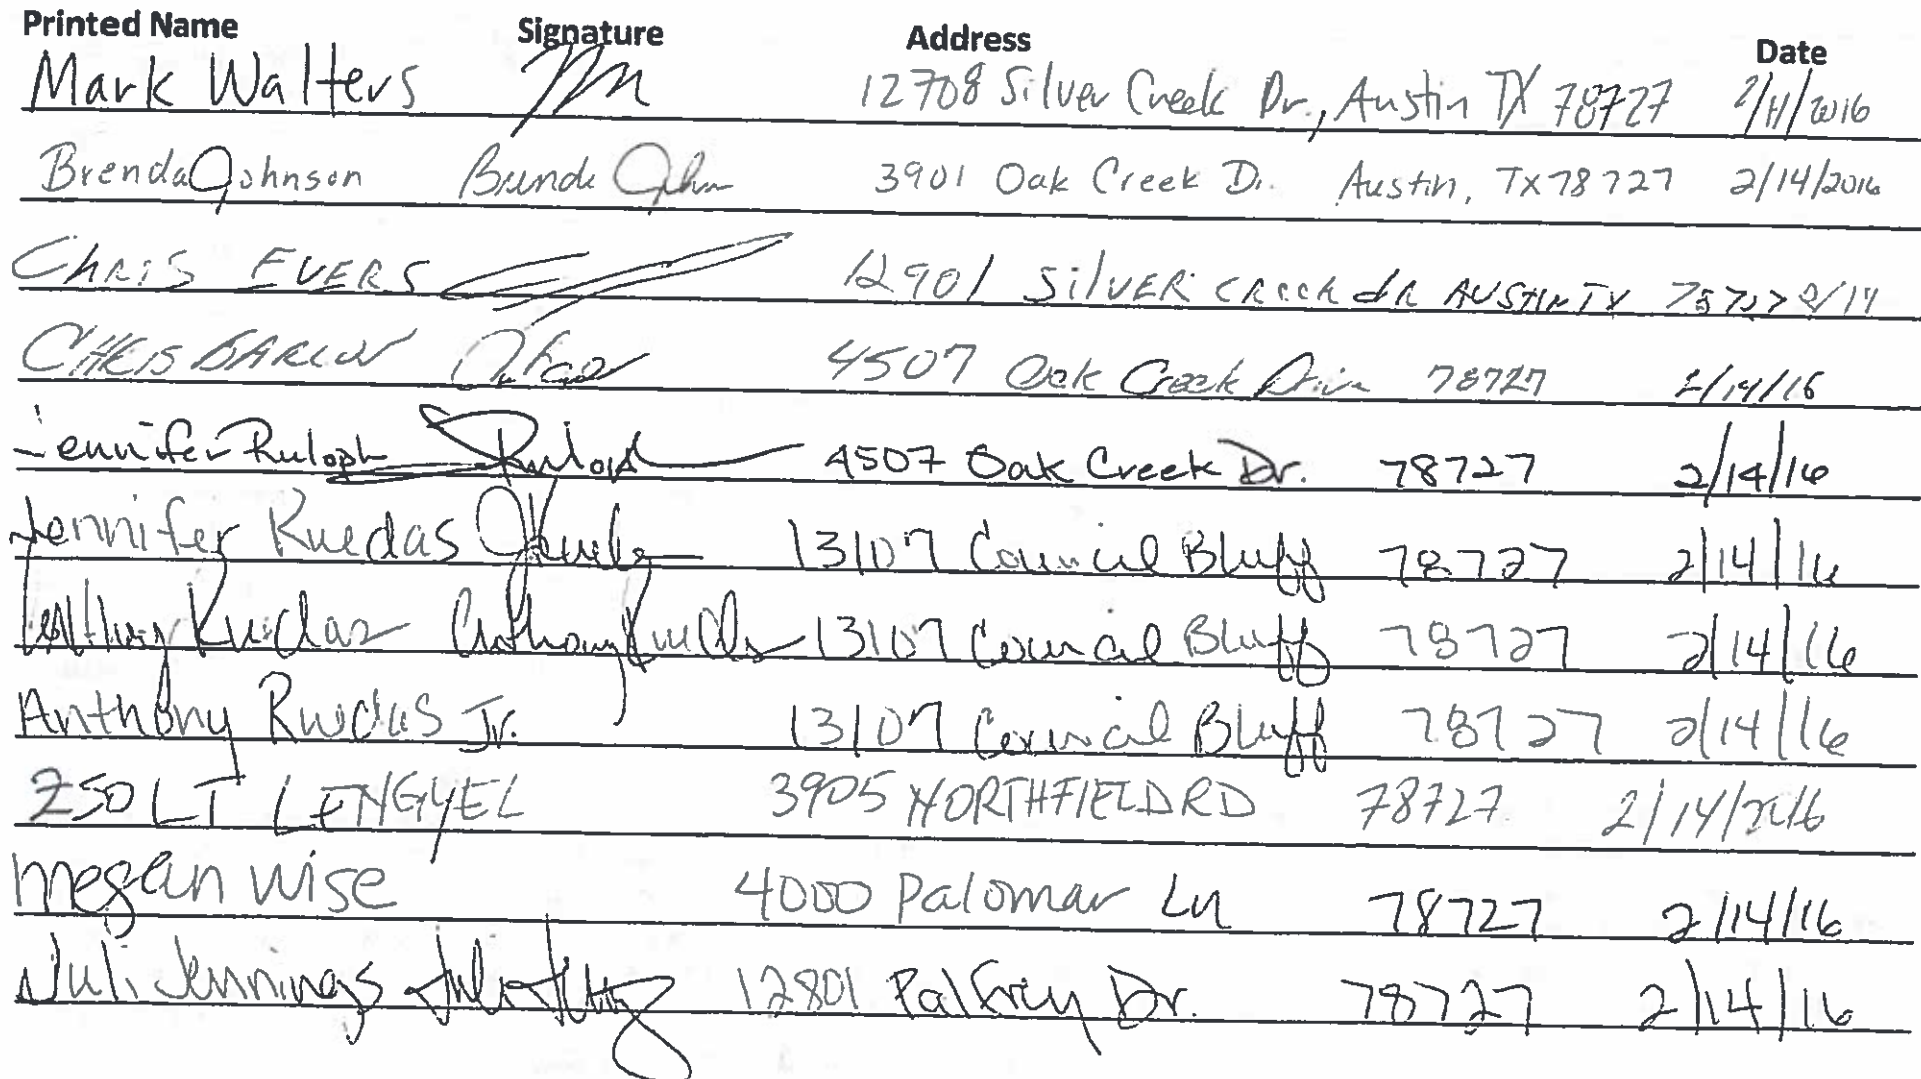 Printed Name Signature Address Date
Mark Walters 12708 Silver Creek Dr., Austin TX 78727 2/11/2016
Brenda Johnson Brenda John 3901 Oak Creek Dr. Austin, TX 78727 2/14/2016
CHRIS EVERS 12901 SilVER CREEK dR AUSTIN TX 78727 2/14
CHRIS BARLOW 4507 Oak Creek Drive 78727 2/14/16
Jennifer Ruloph 4507 Oak Creek Dr. 78727 2/14/16
Jennifer Ruedas 13107 Council Bluff 78727 2/14/16
Anthony Ruedas Anthony Ruedas 13107 Council Bluff 78727 2/14/16
Anthony Ruedas Jr. 13107 Council Bluff 78727 2/14/16
ZSOLT LENGYEL 3905 NORTHFIELD RD 78727 2/14/2016
megan wise 4000 Palomar Ln 78727 2/14/16
Juli Jennings 12801 Palfrey Dr. 78727 2/14/16